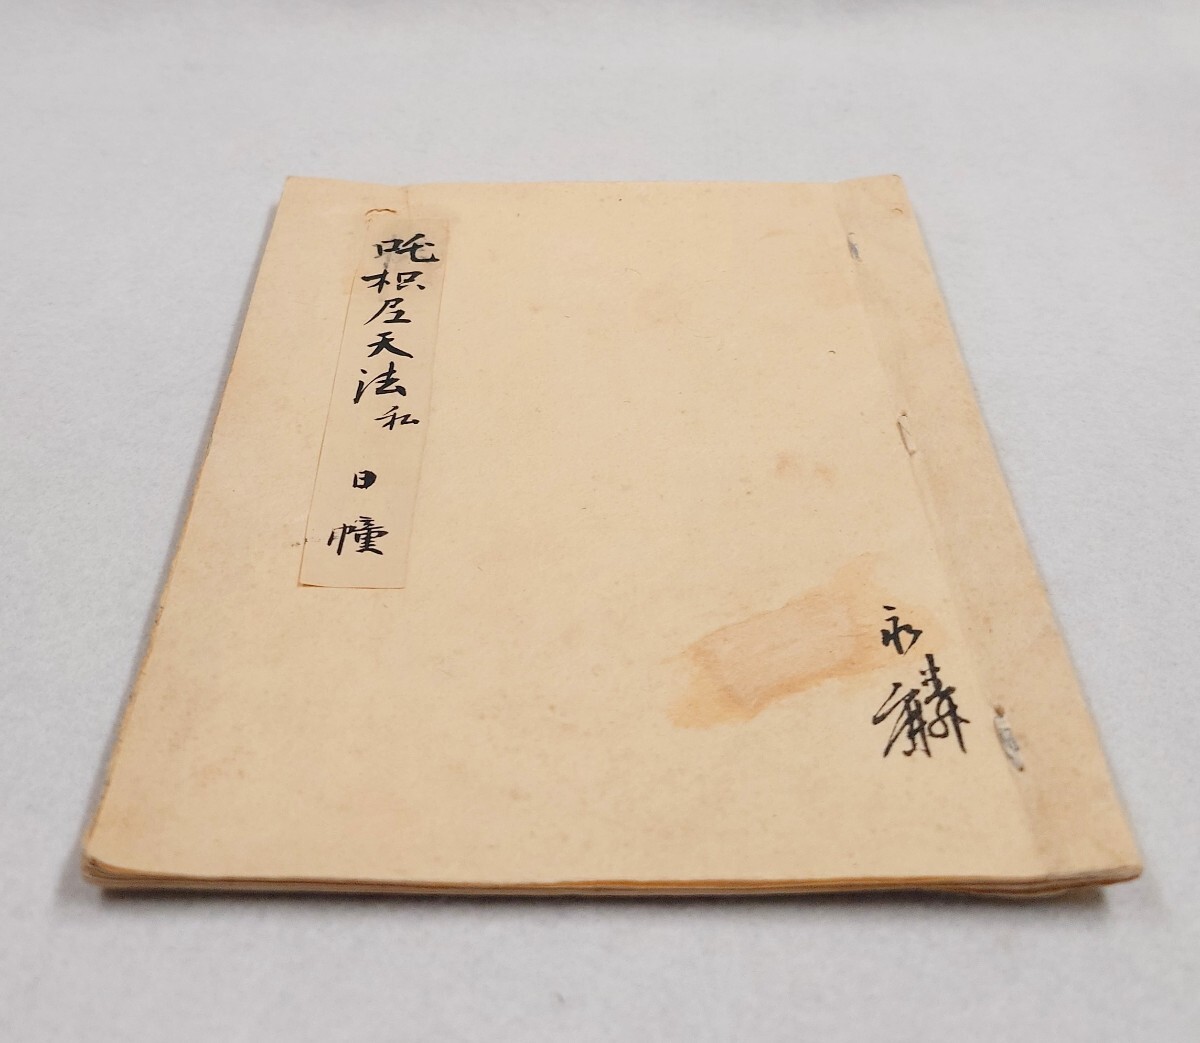 吒枳尼天法 私 日幢
永麟